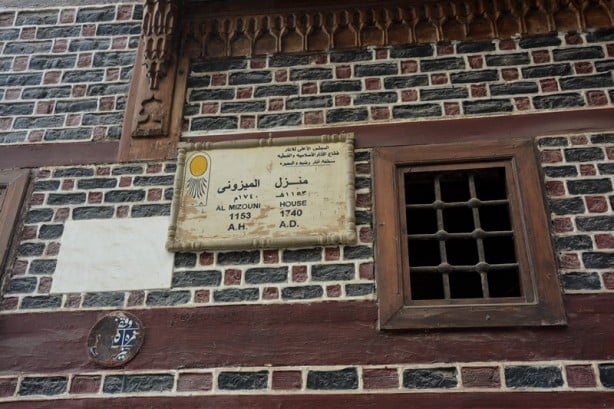 المجلس الأعلى للآثار
قطاع الآثار الإسلامية والقبطية
منطقة آثار رشيد و البحيرة
منزل الميزونى
١١٥٣هـ ١٧٤٠م
AL MIZOUNI HOUSE
1153 1740
A.H. A.D.